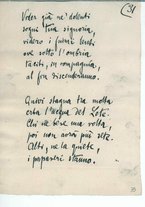 31
Voler già ne' dolenti
sogni tua signoria,
videro i fiumi lenti
ove sotto l'ombria
taciti, in compagnia,
al fin discenderanno.
Quivi stagna tra molta
erta l'acqua del Lete.
Chi ne beve una volta,
poi non avrà più sete.
Altri, ne la quiete,
i papaveri stanno.